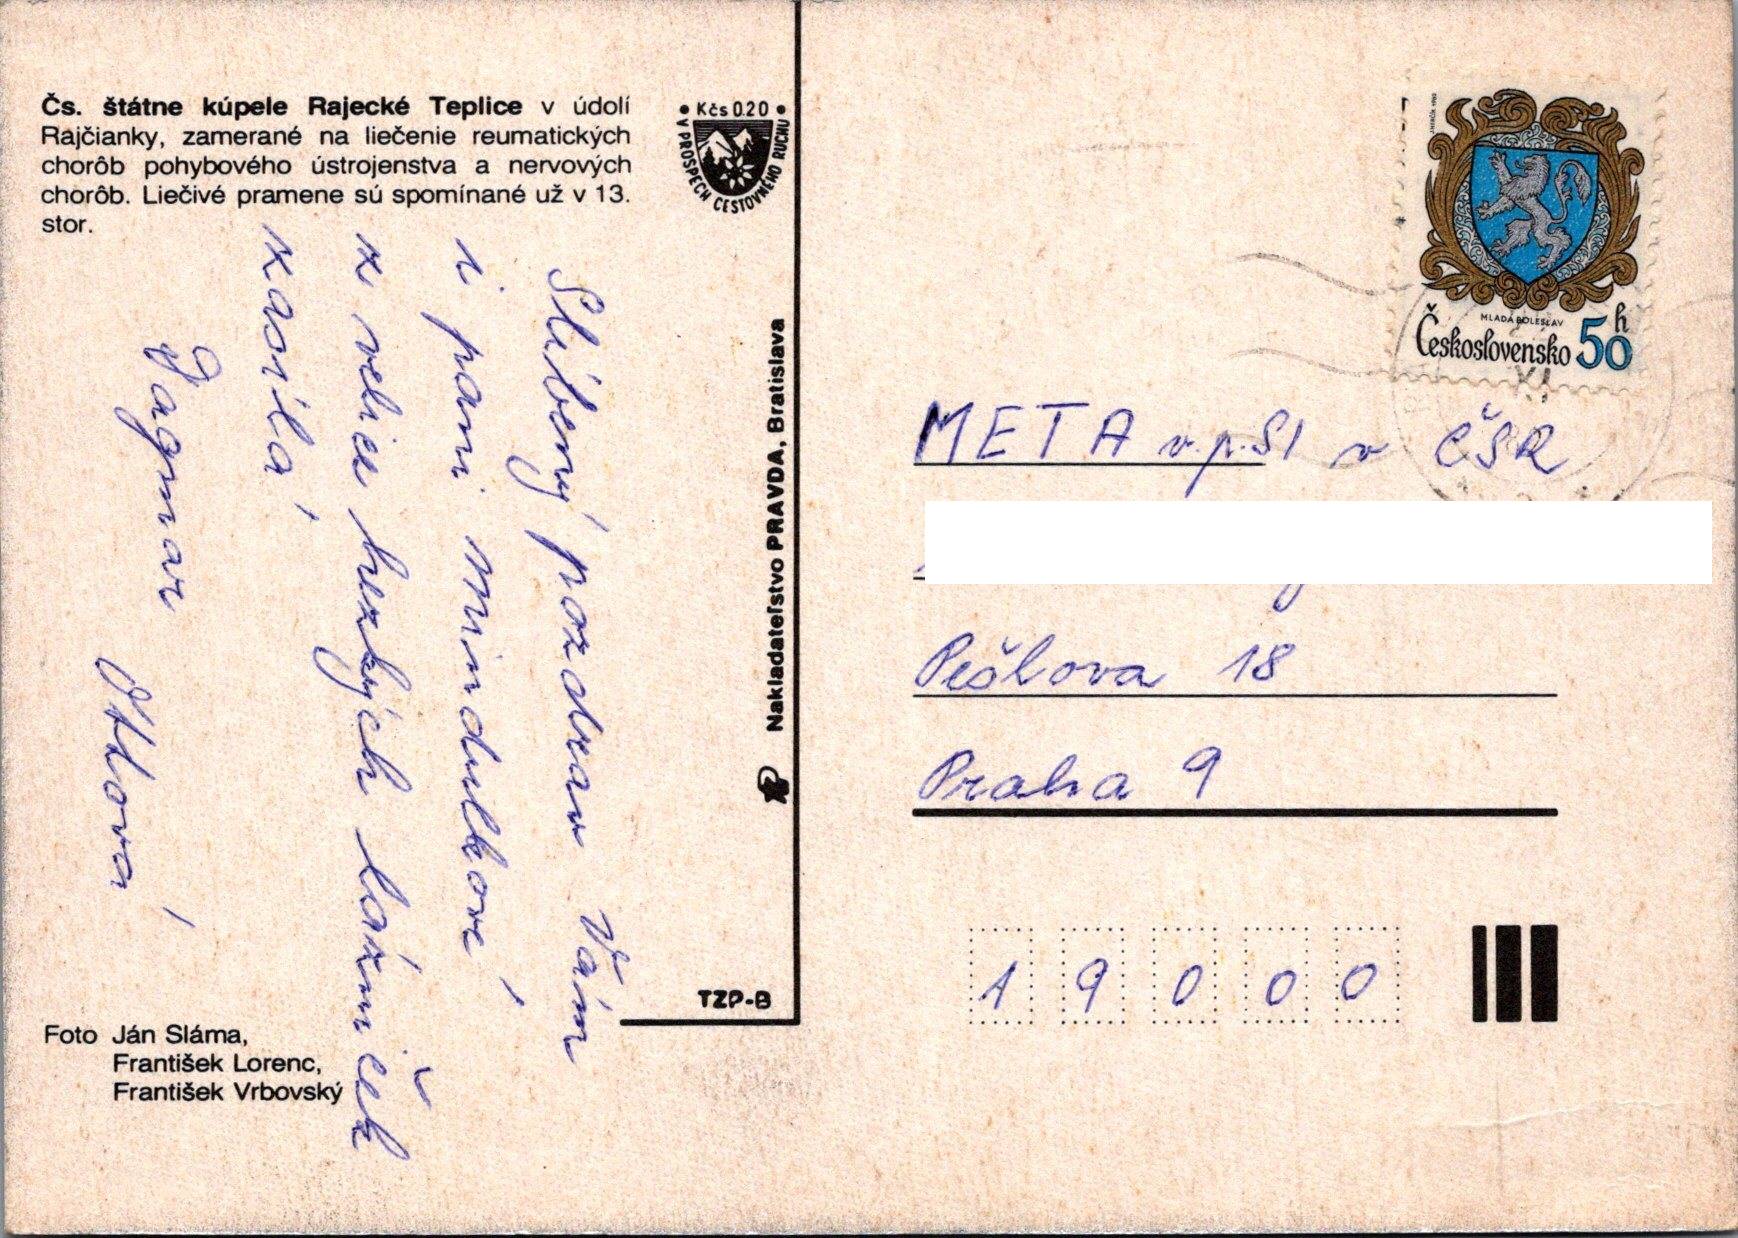 Čs. štátne kúpele Rajecké Teplice v údolí
Rajčianky, zamerané na liečenie reumatických
chorôb pohybového ústrojenstva a nervových
chorôb. Liečivé pramene sú spomínané už v 13.
stor.
• Kčs 0.20 •
V PROSPECH CESTOVNÉHO RUCHU
Slíbený pozdrav Vám
i paní Mindulkové
z velice hezkých lázniček
zasílá
Dagmar
Ottová
Nakladateľstvo PRAVDA, Bratislava
TZP-B
Foto Ján Sláma,
František Lorenc,
František Vrbovský
J. HERČÍK 1982
MLADÁ BOLESLAV
Československo 50 h
XI
META v.p. SI v ČSR
Pešlova 18
Praha 9
19000